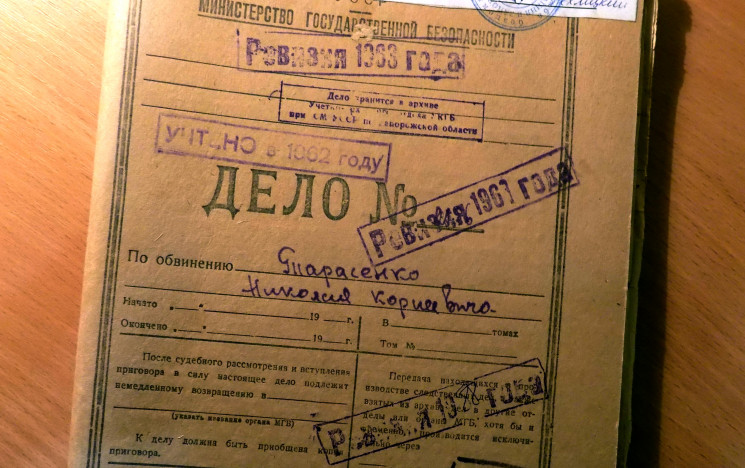 МИНИСТЕРСТВО ГОСУДАРСТВЕННОЙ БЕЗОПАСНОСТИ
Ревизия 1963 года
Дело хранится в архиве
при СМ УССР по Запорожской области
УЧТЕНО в 1962 году
ДЕЛО №
Ревизия 1961 года
По обвинению Тарасенко
Николая Корнеевича
Начато 19 г.
В томах
Окончено 19 г.
Том №
После судебного рассмотрения и вступления
приговора в силу настоящее дело подлежит
немедленному возвращению в
(указать название органа МГБ)
К делу должна быть приобщена копия
приговора.
Передача находящихся в произ-
водстве следственных дел
взятых из архива в другие от-
делы или органы МГБ, хотя бы и
временно, производится исключи-
тельно через
года